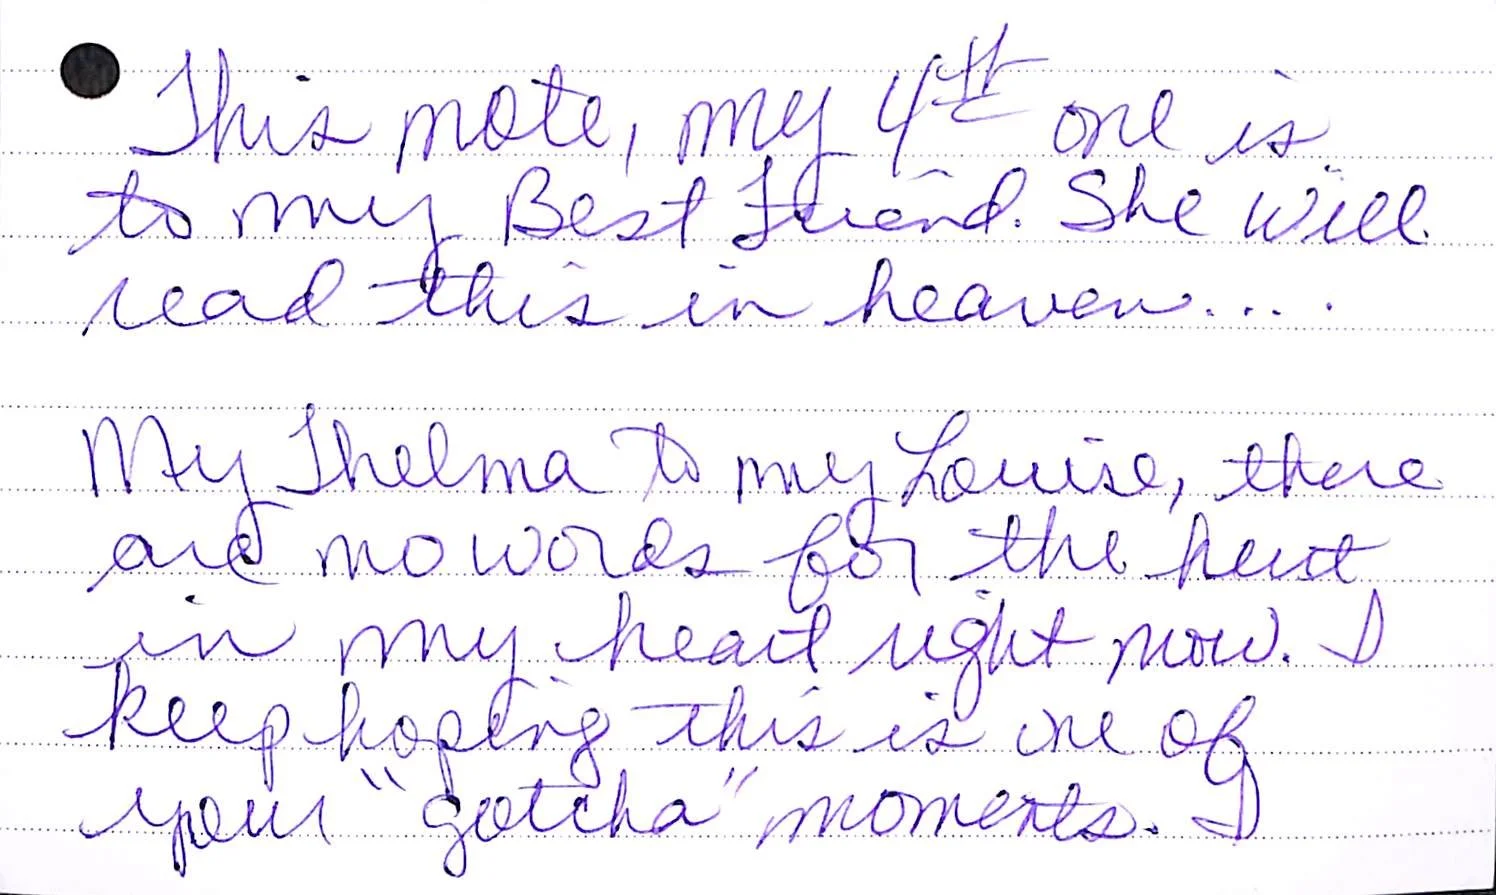 This note, my 4th one is
to my Best Friend. She will
read this in heaven....
My Thelma to my Louise, there
are no words for the hurt
in my heart right now. I
keep hoping this is one of
your "gotcha" moments. I